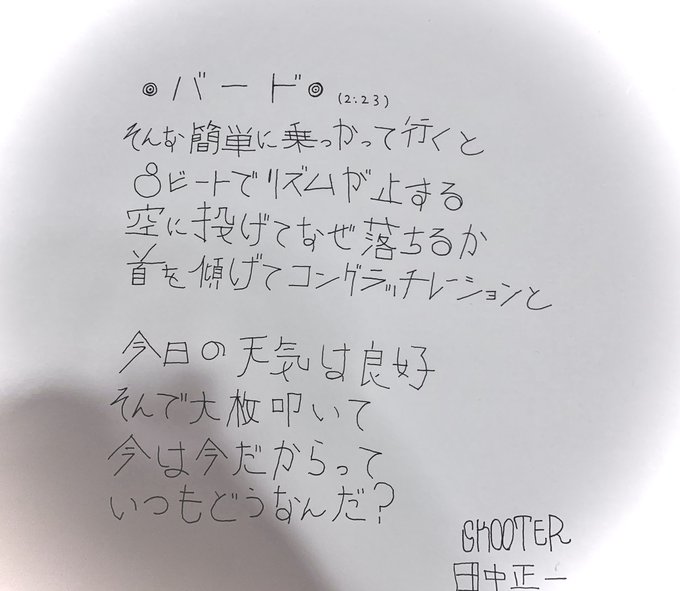 ◎バード◎ (2:23)
そんな簡単に乗っかって行くと
8ビートでリズムが止する
空に投げてなぜ落ちるか
首を傾げてコングラッチレーションと
今日の天気は良好
そんで大枚叩いて
今は今だからって
いつもどうなんだ?
GKOOTER
田中正一